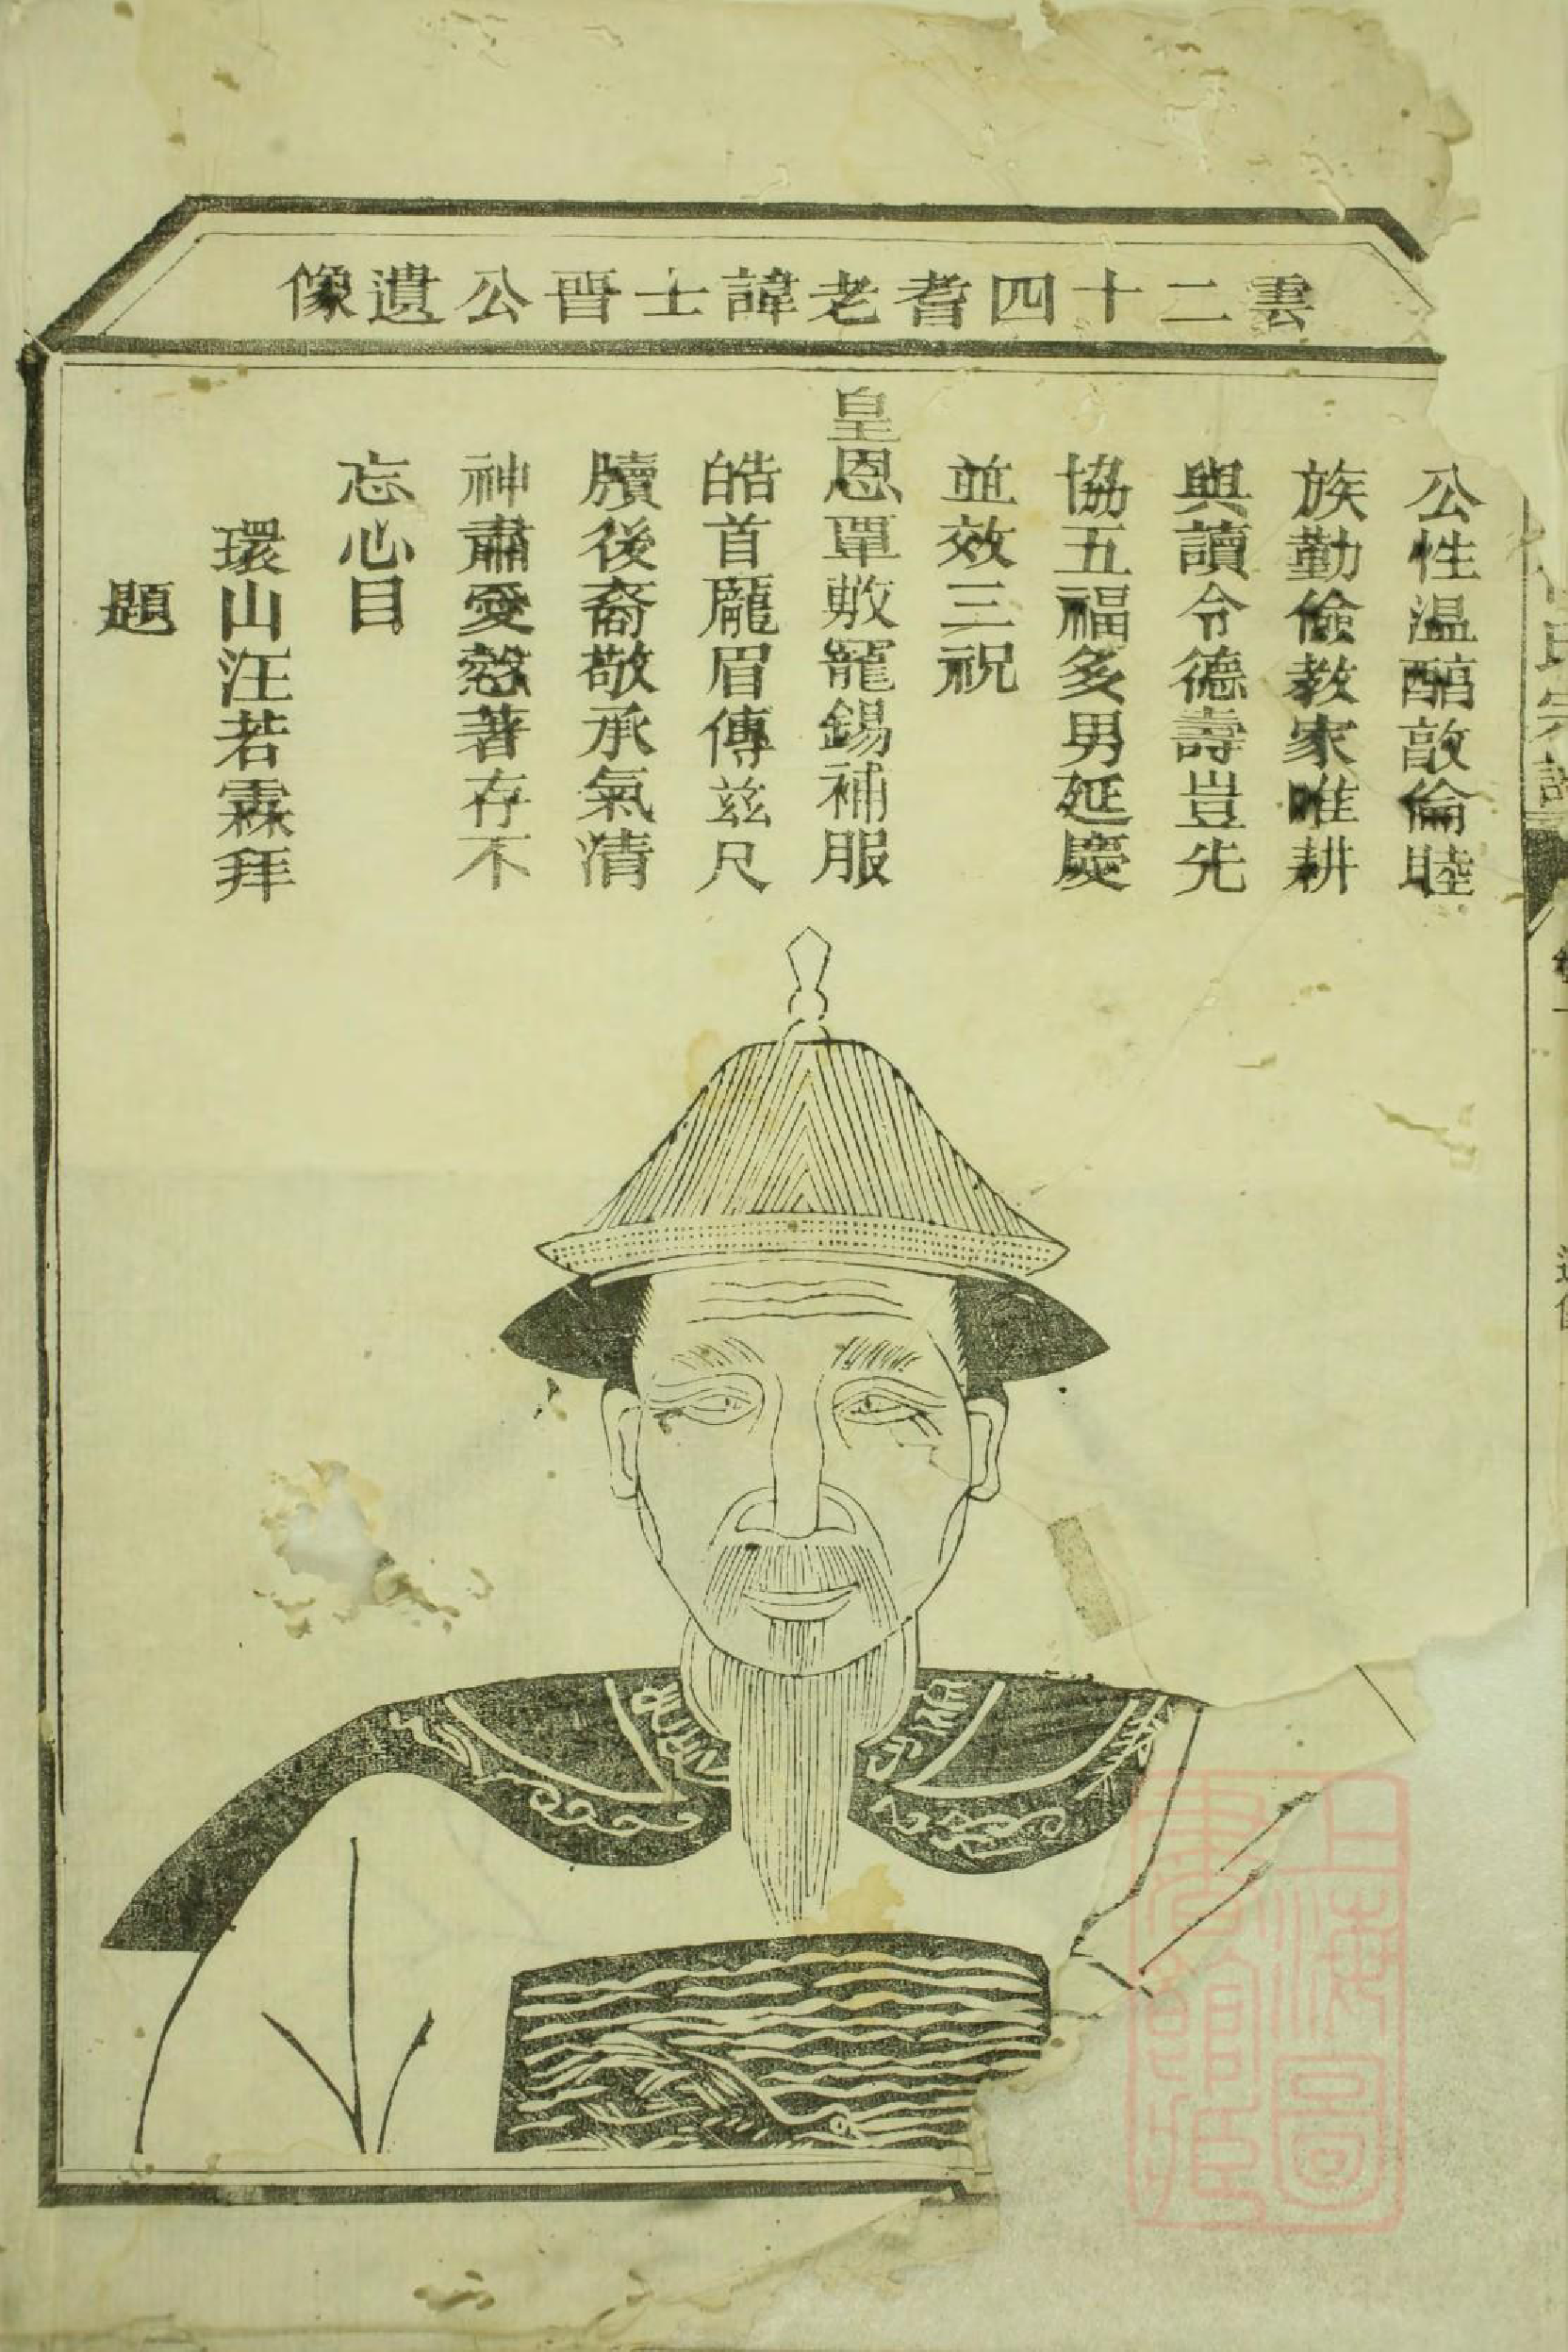 雲二十四耆老諱士晋公遺像
公性温醇敦倫睦
族勤儉教家唯耕
與讀令德壽豈先
協五福多男延慶
並效三祝
皇恩覃敷寵錫補服
皓首龐眉傳兹尺
牘後裔敬承氣清
神肅愛慤著存不
忘心目
環山汪若霖拜
題
上海圖
書館藏